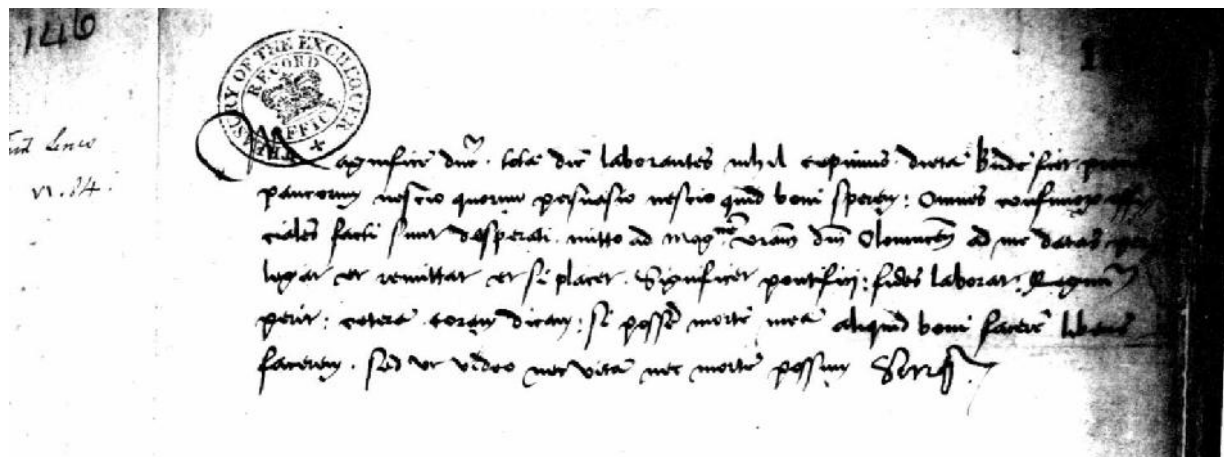 146
TREASURY OF THE EXCHEQUER RECORD OFFICE
Magnifice dne. tota die laborantes nihil cepimus. dieta Bude fiet
paucorum nescio quorum persuasio nescio quid boni sperem: Omnes
ciales facti sunt desperati. mitto ad mag. vram dni Olomucen ad me datas
legat et remittat et si placet. Significet pontifici: fides laborat: Regnum
perit: cetera coram dicam: si possem morte mea aliquid boni facere libens
facerem. sed ut video nec vita nec morte possum